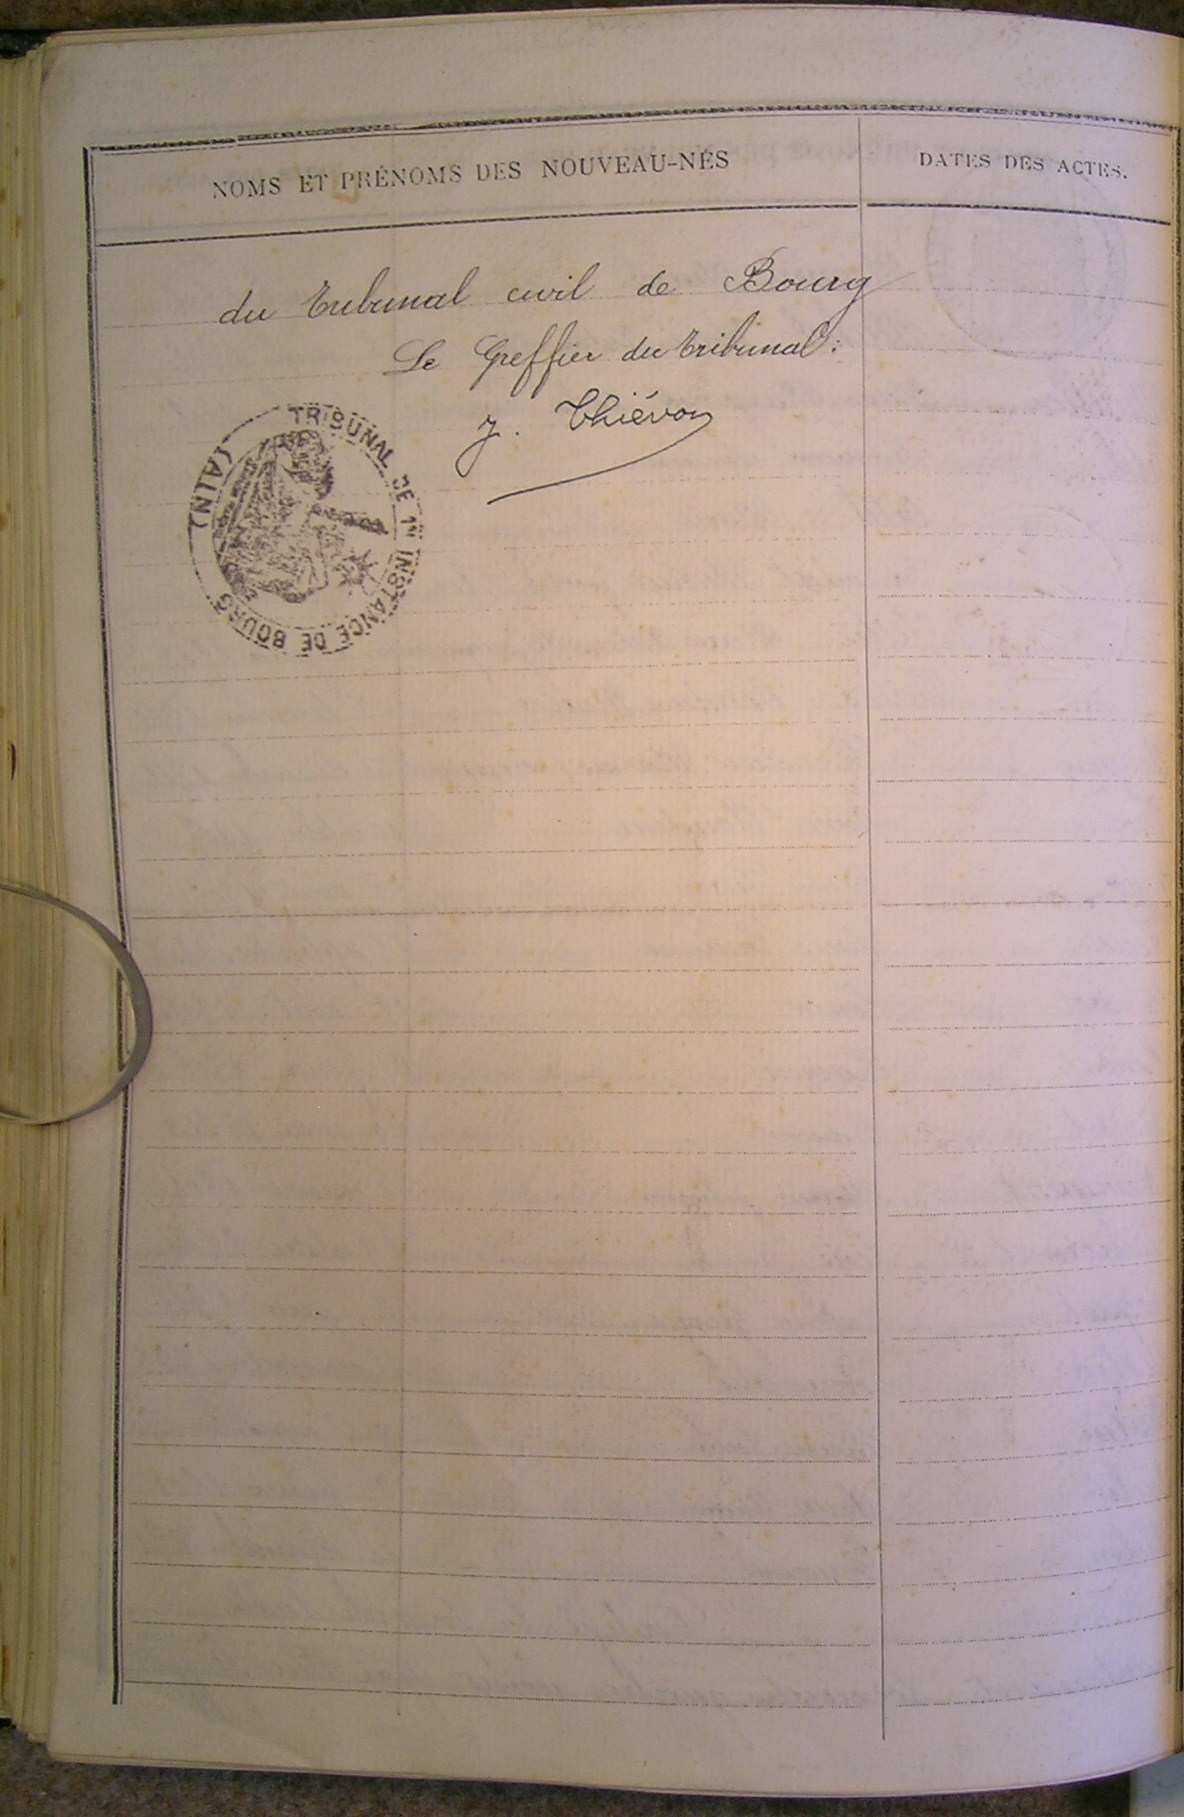 NOMS ET PRÉNOMS DES NOUVEAU-NÉS
DATES DES ACTES.
du tribunal civil de Bourg
Le Greffier du tribunal:
J. Thiévon
TRIBUNAL DE 1RE INSTANCE DE BOURG (AIN)